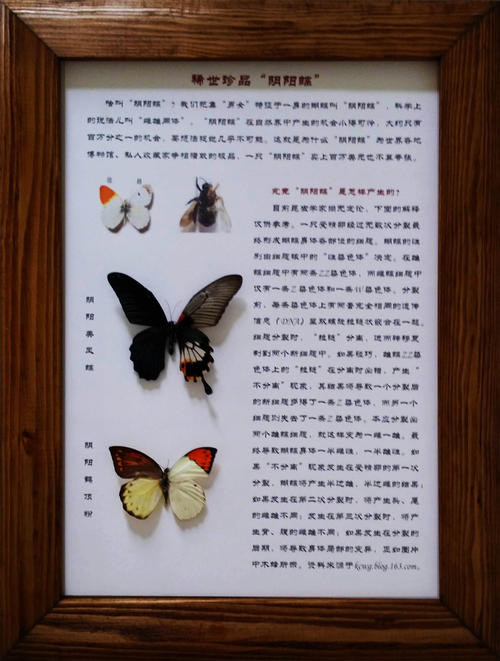 稀世珍品“阴阳蝶”
啥叫“阴阳蝶”？我们把集“男女”特征于一身的蝴蝶叫“阴阳蝶”，科学上
的说法叫“雌雄同体”。“阴阳蝶”在自然界中产生的机会小得可怜，大约只有
百万分之一的机会，要想活捉他几乎不可能。这就是为什么“阴阳蝶”为世界各地
博物馆、私人收藏家争相猎获的极品，一只“阴阳蝶”卖上百万美元也不算夸张。
究竟“阴阳蝶”是怎样产生的？
目前昆虫学家尚无定论，下面的解释
仅供参考。一只受精卵经过无数次分裂最
终形成蝴蝶身体各部位的细胞。蝴蝶的性
别由细胞核中的“性染色体”决定。在雄
蝶细胞中有两条ZZ染色体，而雌蝶细胞中
仅有一条Z染色体和一条W染色体。分裂
前，每条染色体上有两套完全相同的遗传
信息（DNA）呈双螺旋拉链状嵌合在一起。
细胞分裂时，“拉链”分离，进而转移复
制到两个新细胞中。如果碰巧，雄蝶ZZ染
色体上的“拉链”在分离时出错，产生“
不分离”现象，其结果将导致一个分裂后
的新细胞多得了一条Z染色体，而另一个
细胞则失去了一条Z染色体。本应分裂出
两个雄蝶细胞，就这样变为一雌一雄。最
终导致蝴蝶身体一半雌性，一半雄性。如
果“不分离”现象发生在受精卵的第一次
分裂，蝴蝶将产生半边雄，半边雌的结果；
如果发生在第二次分裂时，将产生头、尾
的雌雄不同；发生在第三次分裂时，将产
生背、腹的雌雄不同；如果发生在分裂的
后期，将导致身体局部的变异，正如图片
中木蜂所示。资料来源于kcwg.blog.163.com。
阴阳美凤蝶
阴阳鹤顶粉